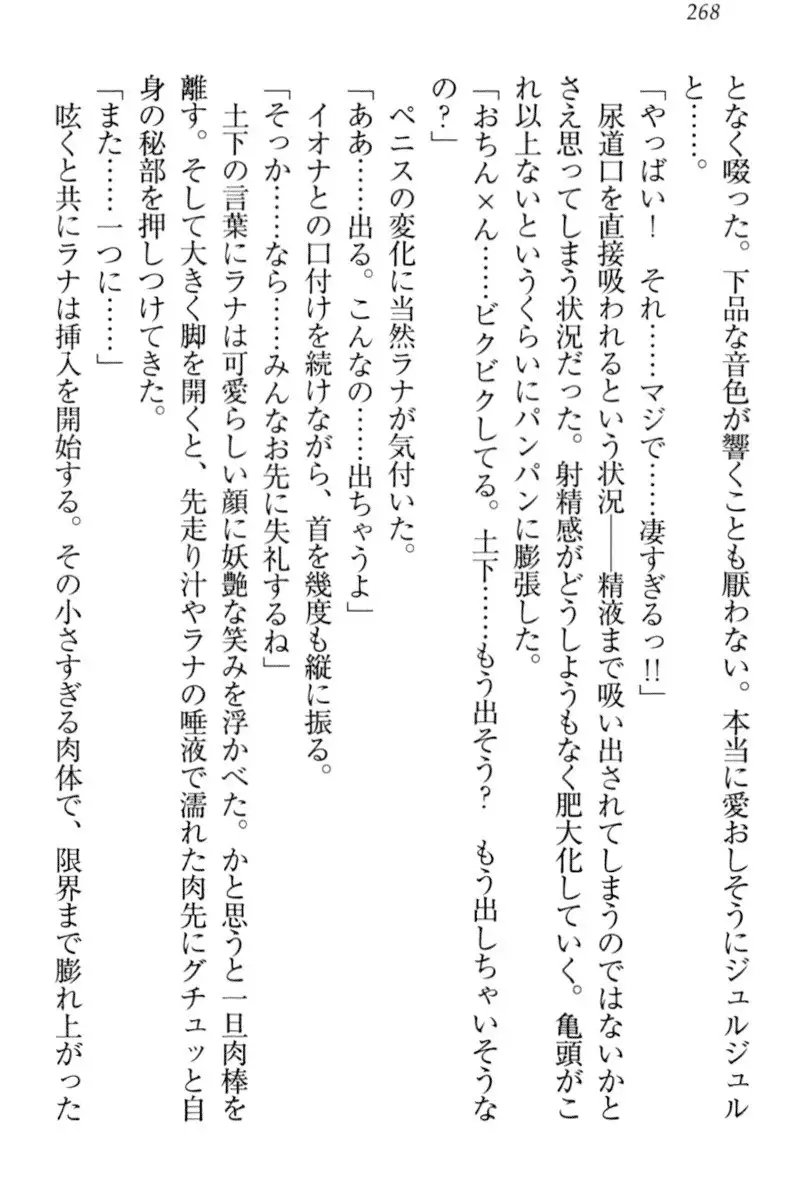 268
となく啜った。下品な音色が響くことも厭わない。本当に愛おしそうにジュルジュル
と……。
「やっばい！　それ……マジで……凄すぎるっ!!」
尿道口を直接吸われるという状況――精液まで吸い出されてしまうのではないかと
さえ思ってしまう状況だった。射精感がどうしようもなく肥大化していく。亀頭がこ
れ以上ないというくらいにパンパンに膨張した。
「おちん×ん……ビクビクしてる。土下……もう出そう？　もう出しちゃいそうな
の？」
ペニスの変化に当然ラナが気付いた。
「ああ……出る。こんなの……出ちゃうよ」
イオナとの口付けを続けながら、首を幾度も縦に振る。
「そっか……なら……みんなお先に失礼するね」
土下の言葉にラナは可愛らしい顔に妖艶な笑みを浮かべた。かと思うと一旦肉棒を
離す。そして大きく脚を開くと、先走り汁やラナの唾液で濡れた肉先にグチュッと自
身の秘部を押しつけてきた。
「また……一つに……」
呟くと共にラナは挿入を開始する。その小さすぎる肉体で、限界まで膨れ上がった